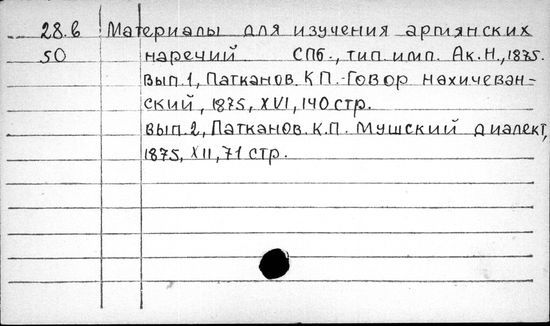 28.в Материалы для изучения армянских
50 наречий СПб., тип. имп. Ак. Н., 1875.
Вып. 1, Патканов. К П. - Говор нахичеван-
ский, 1875, XVI, 140 стр.
Вып. 2, Патканов. К. П. Мушский диалект,
1875, XII, 71 стр.